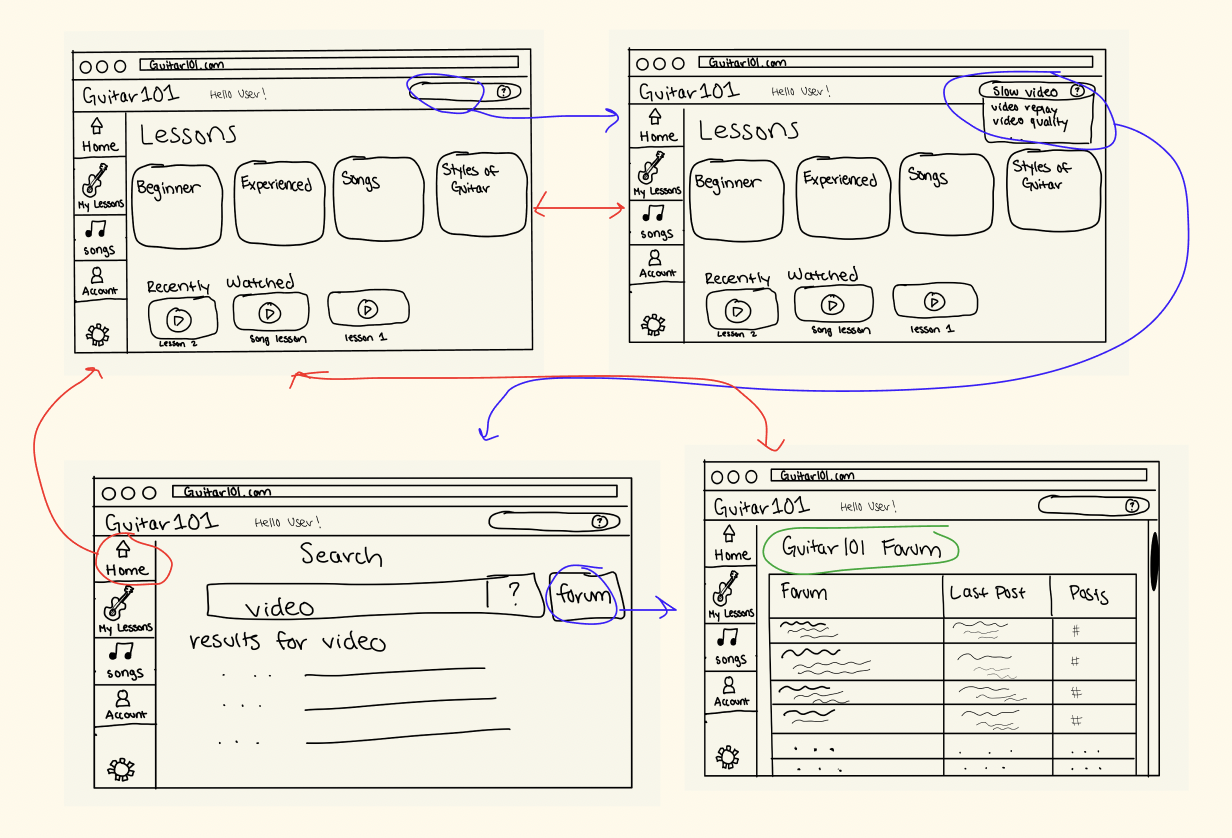 Guitar101.com
Guitar101 Hello User! ?
Home
My Lessons
songs
Account
Lessons
Beginner Experienced Songs Styles of
Guitar
Recently Watched
Lesson 2 song lesson lesson 1
Guitar101.com
Guitar101 Hello User! Slow video ?
video replay
video quality
Home
My Lessons
songs
Account
Lessons
Beginner Experienced Songs Styles of
Guitar
Recently Watched
Lesson 2 song lesson lesson 1
Guitar101.com
Guitar101 Hello User! ?
Home
My Lessons
songs
Account
Search
video ? forum
results for video
Guitar101.com
Guitar101 Hello User! ?
Home
My Lessons
songs
Account
Guitar101 Forum
Forum Last Post Posts
#
#
#
#